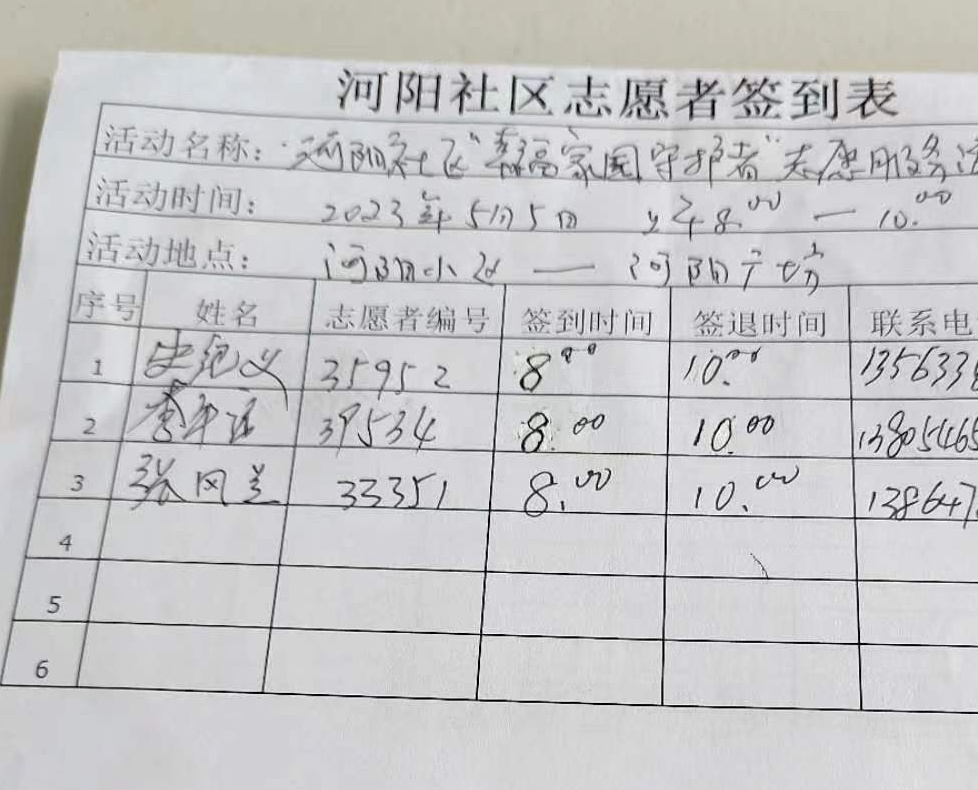 河阳社区志愿者签到表
活动名称：河阳社区"幸福家园守护者"志愿服务活
活动时间： 2023年5月5日 上午8:00 — 10:00
活动地点： 河阳小区 — 河阳广场
序号 姓名 志愿者编号 签到时间 签退时间 联系电
1 史纪义 35952 8:00 10:00 1356336
2 39534 8:00 10:00 13805465
3 张风兰 33351 8:00 10:00 138647
4
5
6